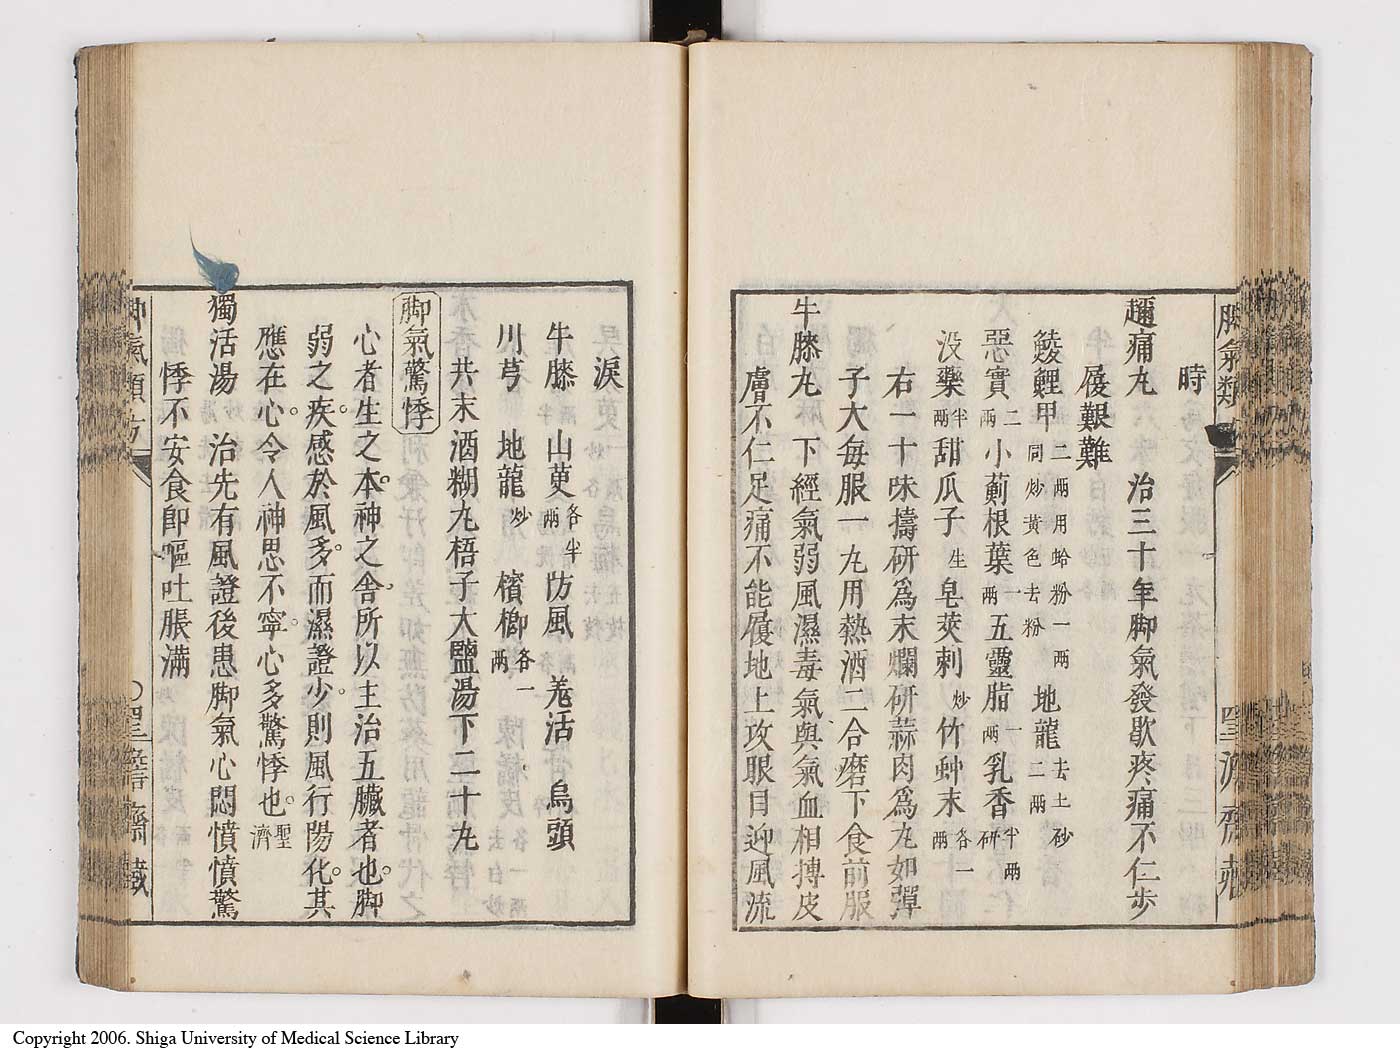 時
趰痛丸 治三十年脚氣發歇疼痛不仁步
履艱難
鯪鯉甲二兩用蛤粉一兩同炒黄色去粉 地龍去土砂二兩
惡實二兩 小薊根葉一兩 五靈脂一兩 乳香半兩研
没藥半兩 甜瓜子生 皂莢刺炒 竹蚛末各一兩
右一十味擣研爲末爛研蒜肉爲丸如彈
子大每服一丸用熱酒二合磨下食前服
牛膝丸 下經氣弱風濕毒氣與氣血相搏皮
膚不仁足痛不能履地上攻眼目迎風流
淚
牛膝 山茰各半兩 防風 羗活 烏頭
川芎 地龍炒 檳榔各一兩
共末酒糊丸梧子大鹽湯下二十丸
脚氣驚悸
心者生之本。神之舍。所以主治五臟者也。脚
弱之疾。感於風多。而濕證少。則風行陽化。其
應在心。令人神思不寧。心多驚悸也。聖濟
獨活湯 治先有風證後患脚氣心悶憤憤驚
悸不安食卽嘔吐脹滿